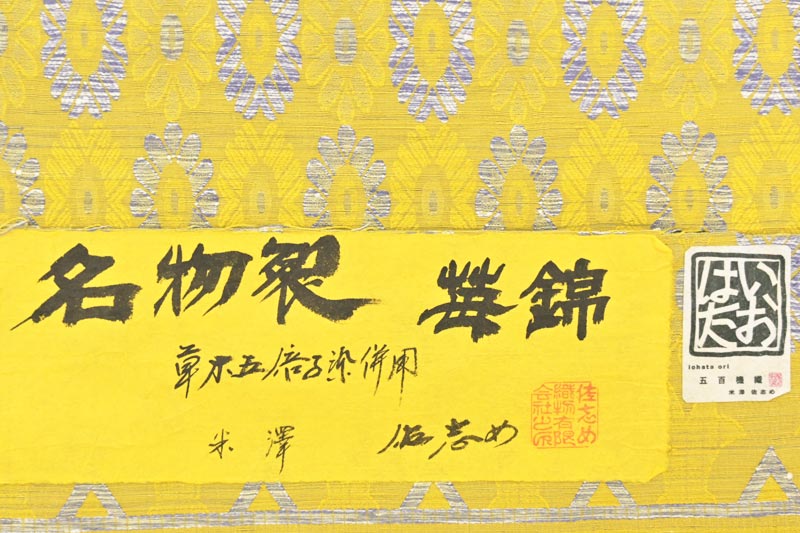 名物裂 莓錦
草木五倍子染併用
米澤 佐志め
佐志め
織物有限
会社之印
いお
はた
iohata ori
五百機織
米澤佐志め